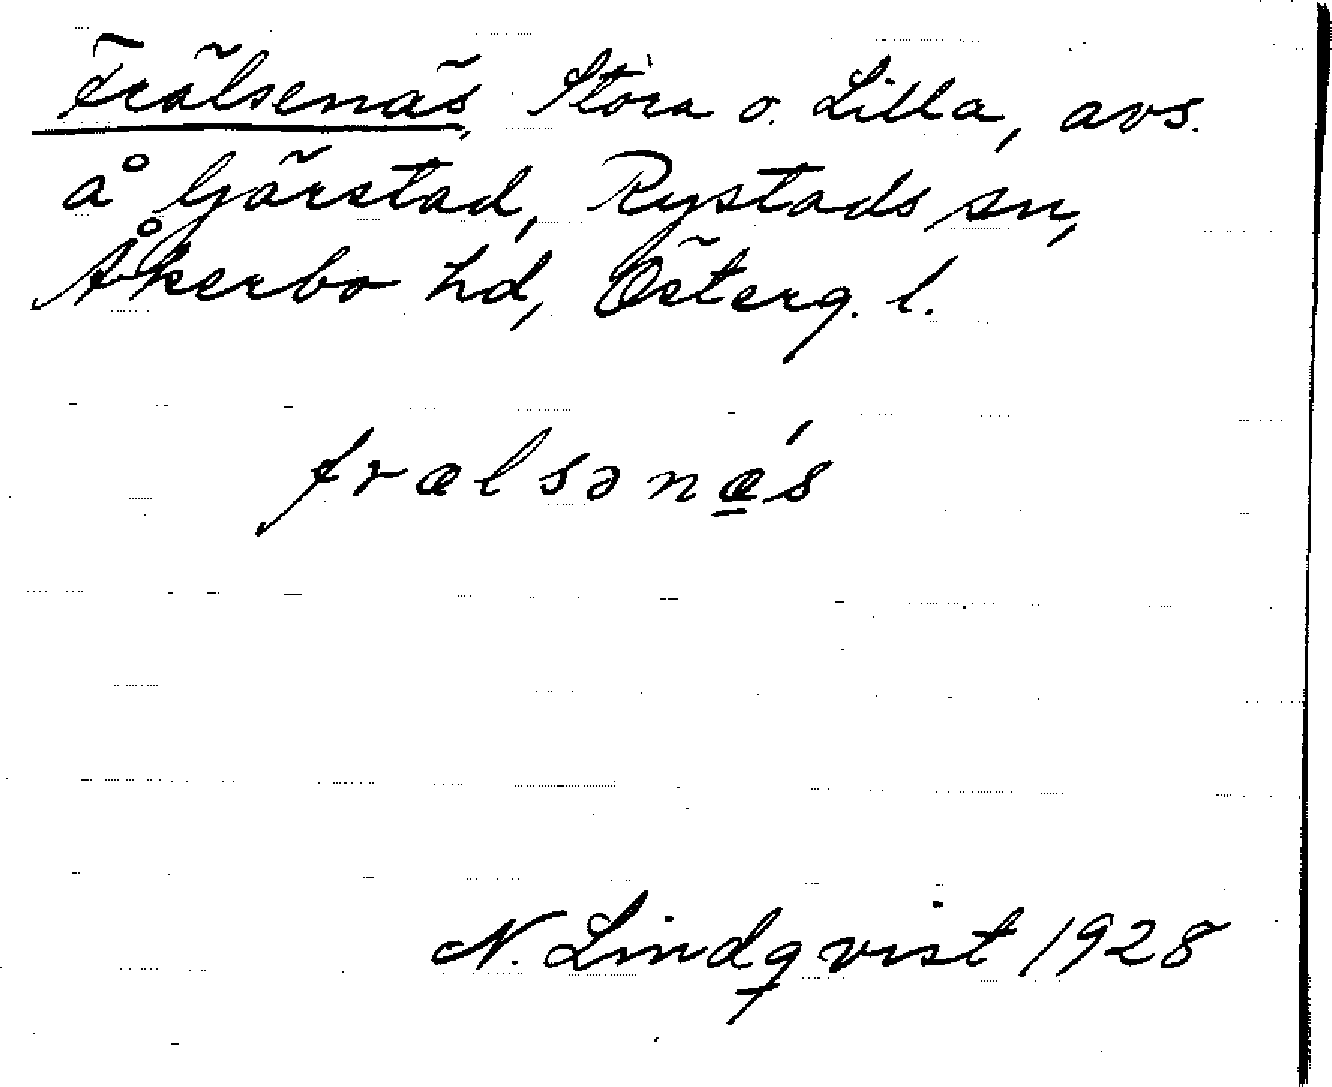 Frälsenäs, Stora o. Lilla, avs.
å Gärstad, Rystads sn,
Åkerbo hd, Österg. l.
frælsənǽ̠s
N. Lindqvist 1928